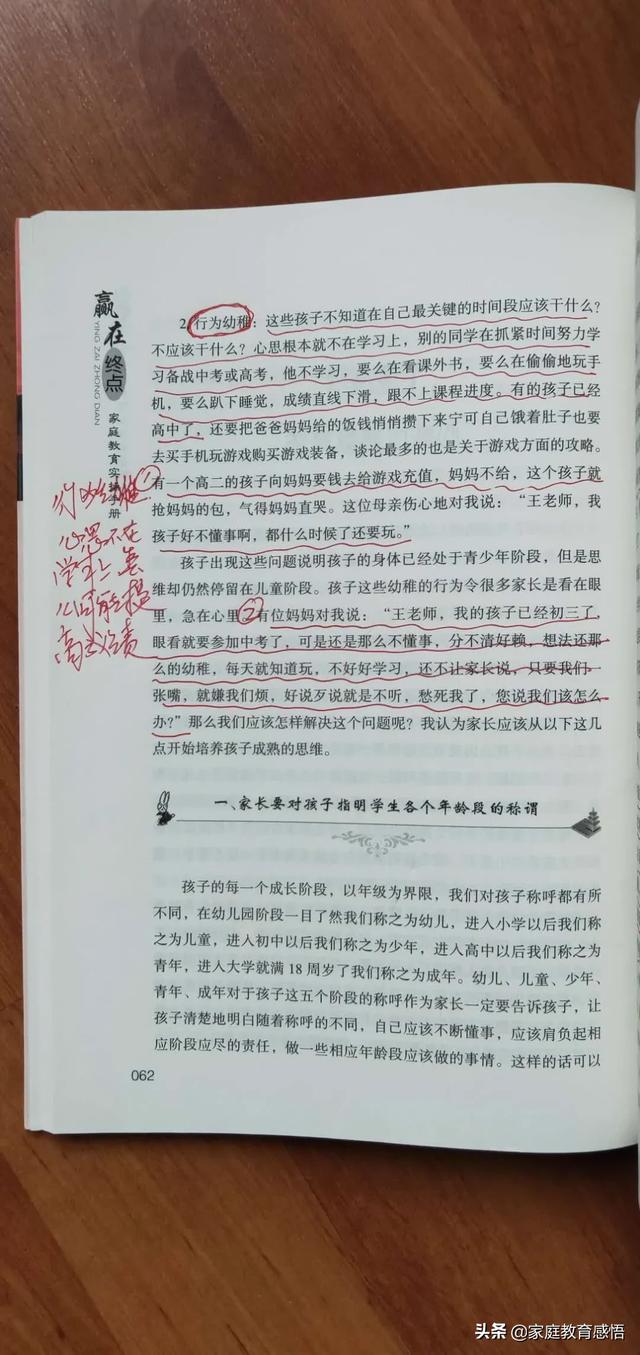 赢在终点
YING ZAI ZHONG DIAN
家庭教育实操手册
2.行为幼稚：这些孩子不知道在自己最关键的时间段应该干什么？
不应该干什么？心思根本就不在学习上，别的同学在抓紧时间努力学
习备战中考或高考，他不学习，要么在看课外书，要么在偷偷地玩手
机，要么趴下睡觉，成绩直线下滑，跟不上课程进度。有的孩子已经
高中了，还要把爸爸妈妈给的饭钱悄悄攒下来宁可自己饿着肚子也要
去买手机玩游戏购买游戏装备，谈论最多的也是关于游戏方面的攻略。
有一个高二的孩子向妈妈要钱去给游戏充值，妈妈不给，这个孩子就
抢妈妈的包，气得妈妈直哭。这位母亲伤心地对我说：“王老师，我
孩子好不懂事啊，都什么时候了还要玩。”
孩子出现这些问题说明孩子的身体已经处于青少年阶段，但是思
维却仍然停留在儿童阶段。孩子这些幼稚的行为令很多家长是看在眼
里，急在心里②有位妈妈对我说：“王老师，我的孩子已经初三了，
眼看就要参加中考了，可是还是那么不懂事，分不清好赖，想法还那
么的幼稚，每天就知道玩，不好好学习，还不让家长说，只要我们一
张嘴，就嫌我们烦，好说歹说就是不听，愁死我了，您说我们该怎么
办？”那么我们应该怎样解决这个问题呢？我认为家长应该从以下这几
点开始培养孩子成熟的思维。
①
心思不在
学习上
一、家长要对孩子指明学生各个年龄段的称谓
孩子的每一个成长阶段，以年级为界限，我们对孩子称呼都有所
不同，在幼儿园阶段一目了然我们称之为幼儿，进入小学以后我们称
之为儿童，进入初中以后我们称之为少年，进入高中以后我们称之为
青年，进入大学就满18周岁了我们称之为成年。幼儿、儿童、少年、
青年、成年对于孩子这五个阶段的称呼作为家长一定要告诉孩子，让
孩子清楚地明白随着称呼的不同，自己应该不断懂事，应该肩负起相
应阶段应尽的责任，做一些相应年龄段应该做的事情。这样的话可以
062
头条 @家庭教育感悟